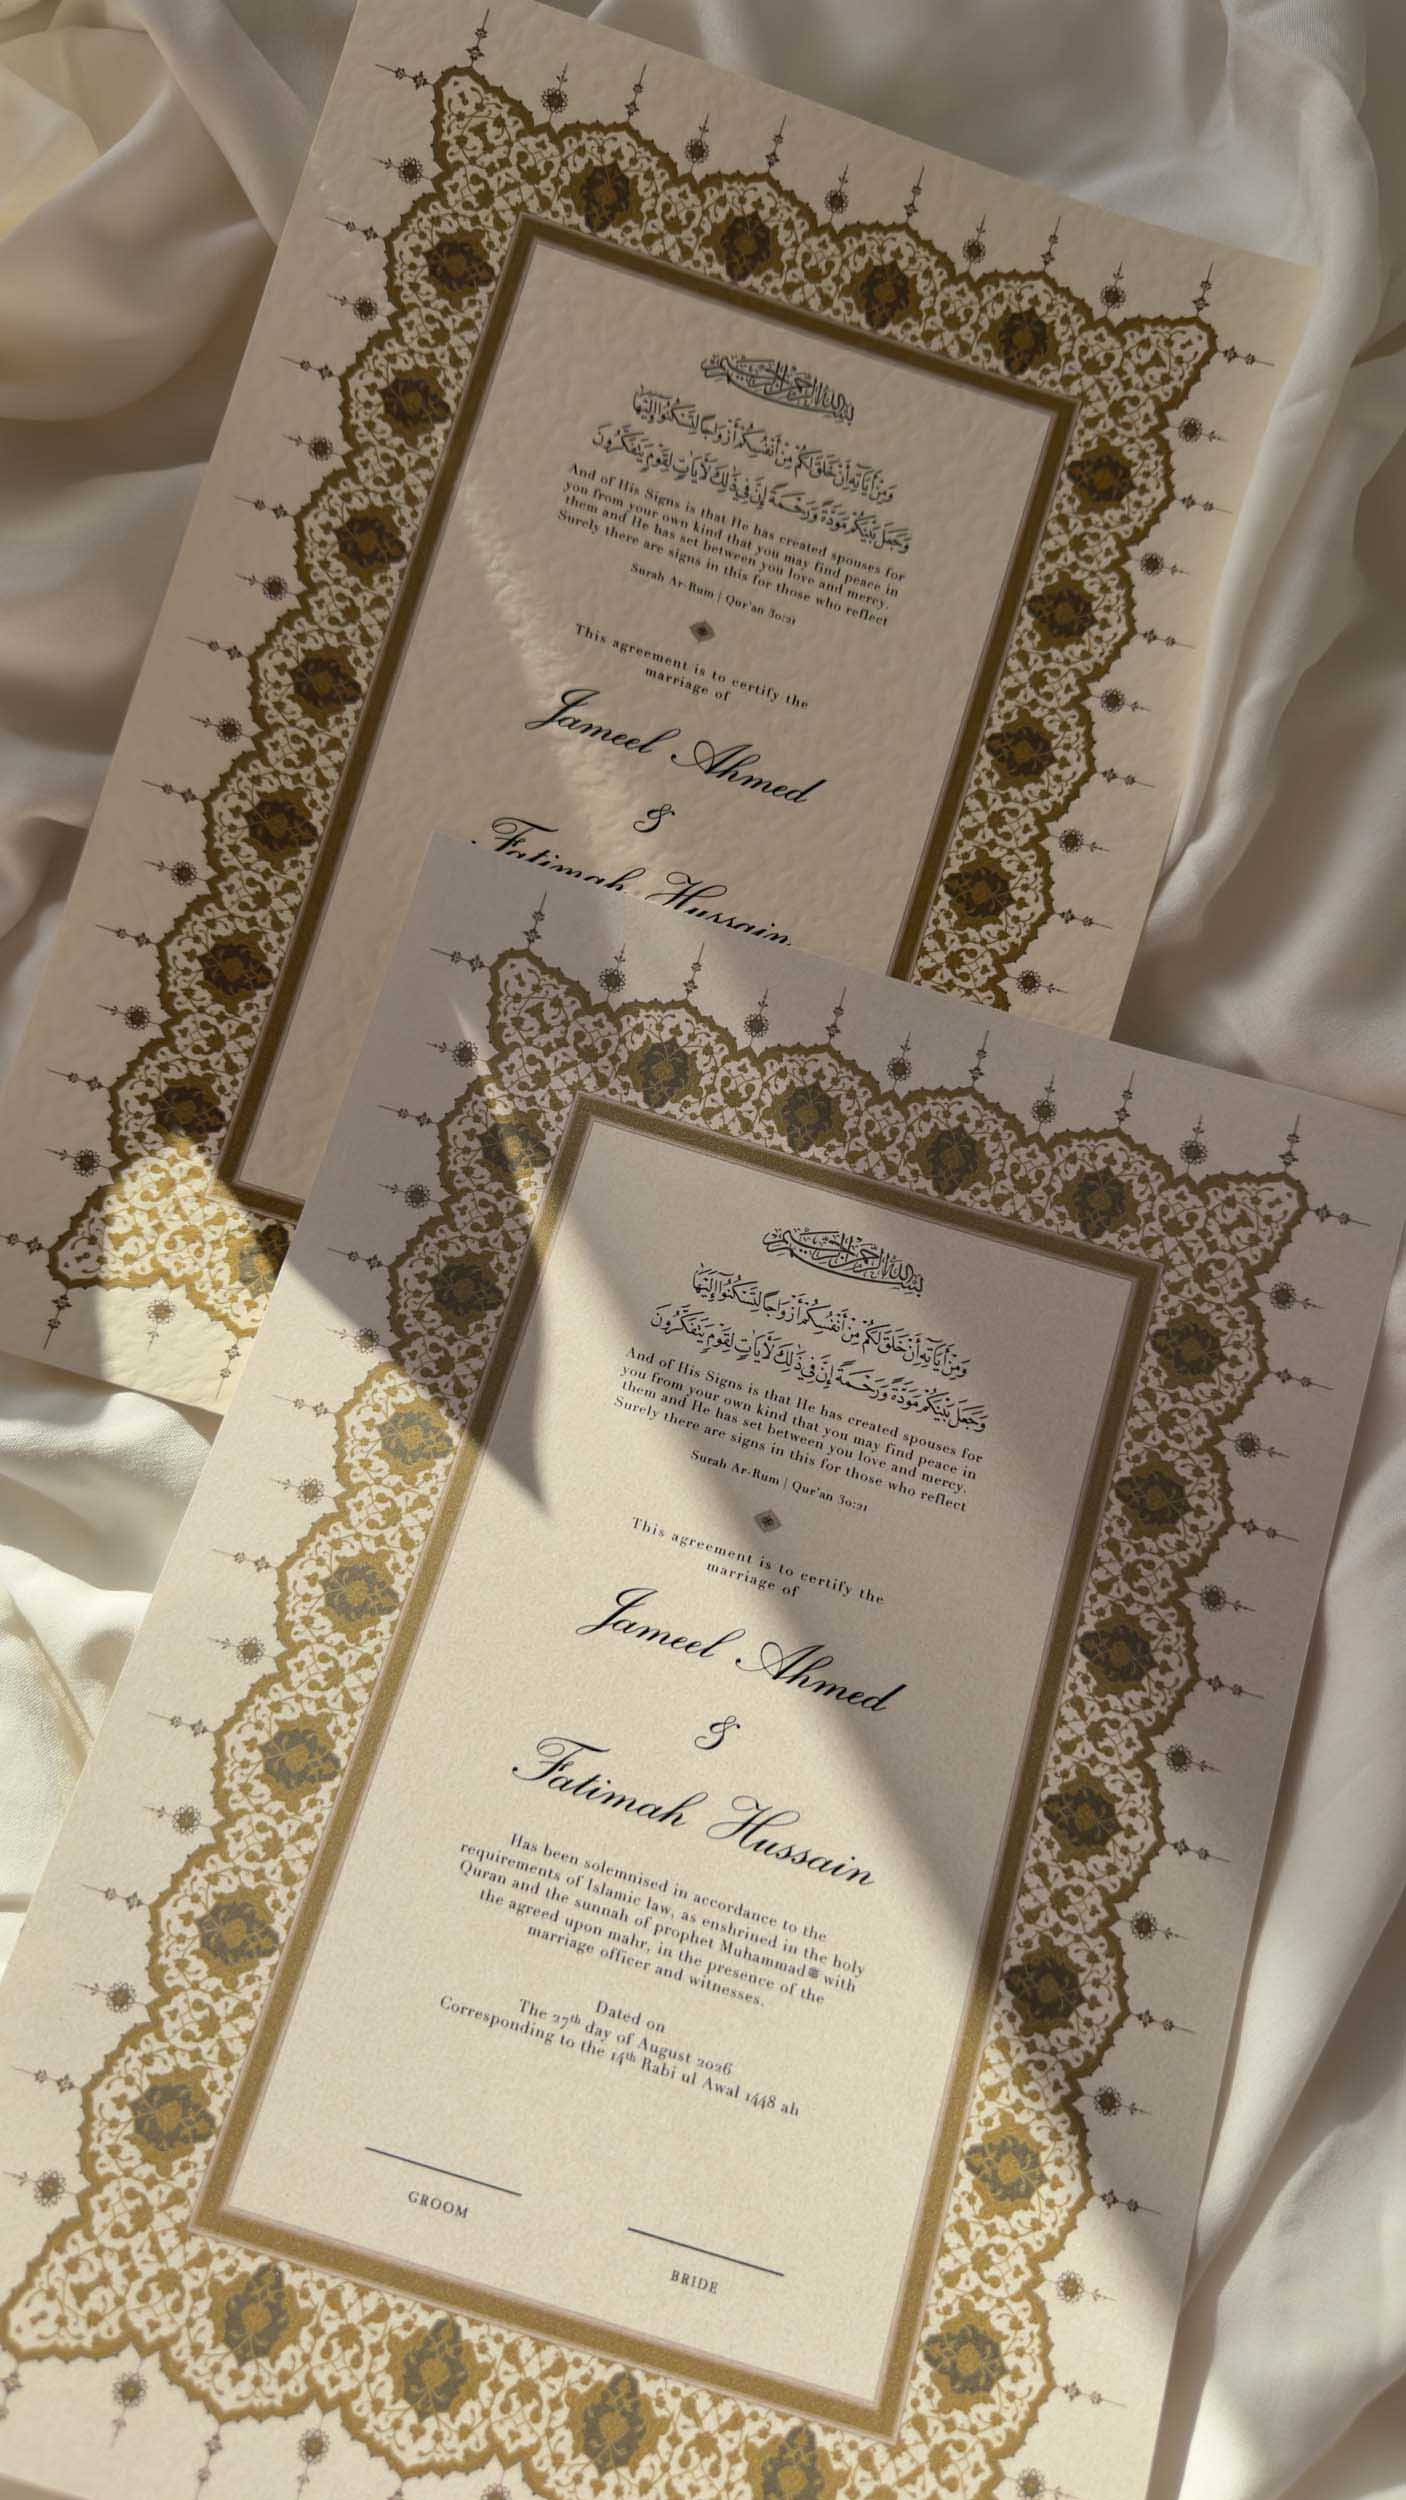 بسم الله الرحمن الرحيم
وَمِنْ آيَاتِهِ أَنْ خَلَقَ لَكُمْ مِنْ أَنْفُسِكُمْ أَزْوَاجًا لِتَسْكُنُوا إِلَيْهَا
وَجَعَلَ بَيْنَكُمْ مَوَدَّةً وَرَحْمَةً إِنَّ فِي ذَٰلِكَ لَآيَاتٍ لِقَوْمٍ يَتَفَكَّرُونَ
And of His Signs is that He has created spouses for
you from your own kind that you may find peace in
them and He has set between you love and mercy.
Surely there are signs in this for those who reflect
Surah Ar-Rum | Qur'an 30:21
This agreement is to certify the
marriage of
Jameel Ahmed
&
Fatimah Hussain
بسم الله الرحمن الرحيم
وَمِنْ آيَاتِهِ أَنْ خَلَقَ لَكُمْ مِنْ أَنْفُسِكُمْ أَزْوَاجًا لِتَسْكُنُوا إِلَيْهَا
وَجَعَلَ بَيْنَكُمْ مَوَدَّةً وَرَحْمَةً إِنَّ فِي ذَٰلِكَ لَآيَاتٍ لِقَوْمٍ يَتَفَكَّرُونَ
And of His Signs is that He has created spouses for
you from your own kind that you may find peace in
them and He has set between you love and mercy.
Surely there are signs in this for those who reflect
Surah Ar-Rum | Qur'an 30:21
This agreement is to certify the
marriage of
Jameel Ahmed
&
Fatimah Hussain
Has been solemnised in accordance to the
requirements of Islamic law, as enshrined in the holy
Quran and the sunnah of prophet Muhammad ﷺ with
the agreed upon mahr, in the presence of the
marriage officer and witnesses.
Dated on
The 27th day of August 2026
Corresponding to the 14th Rabi ul Awal 1448 ah
GROOM
BRIDE